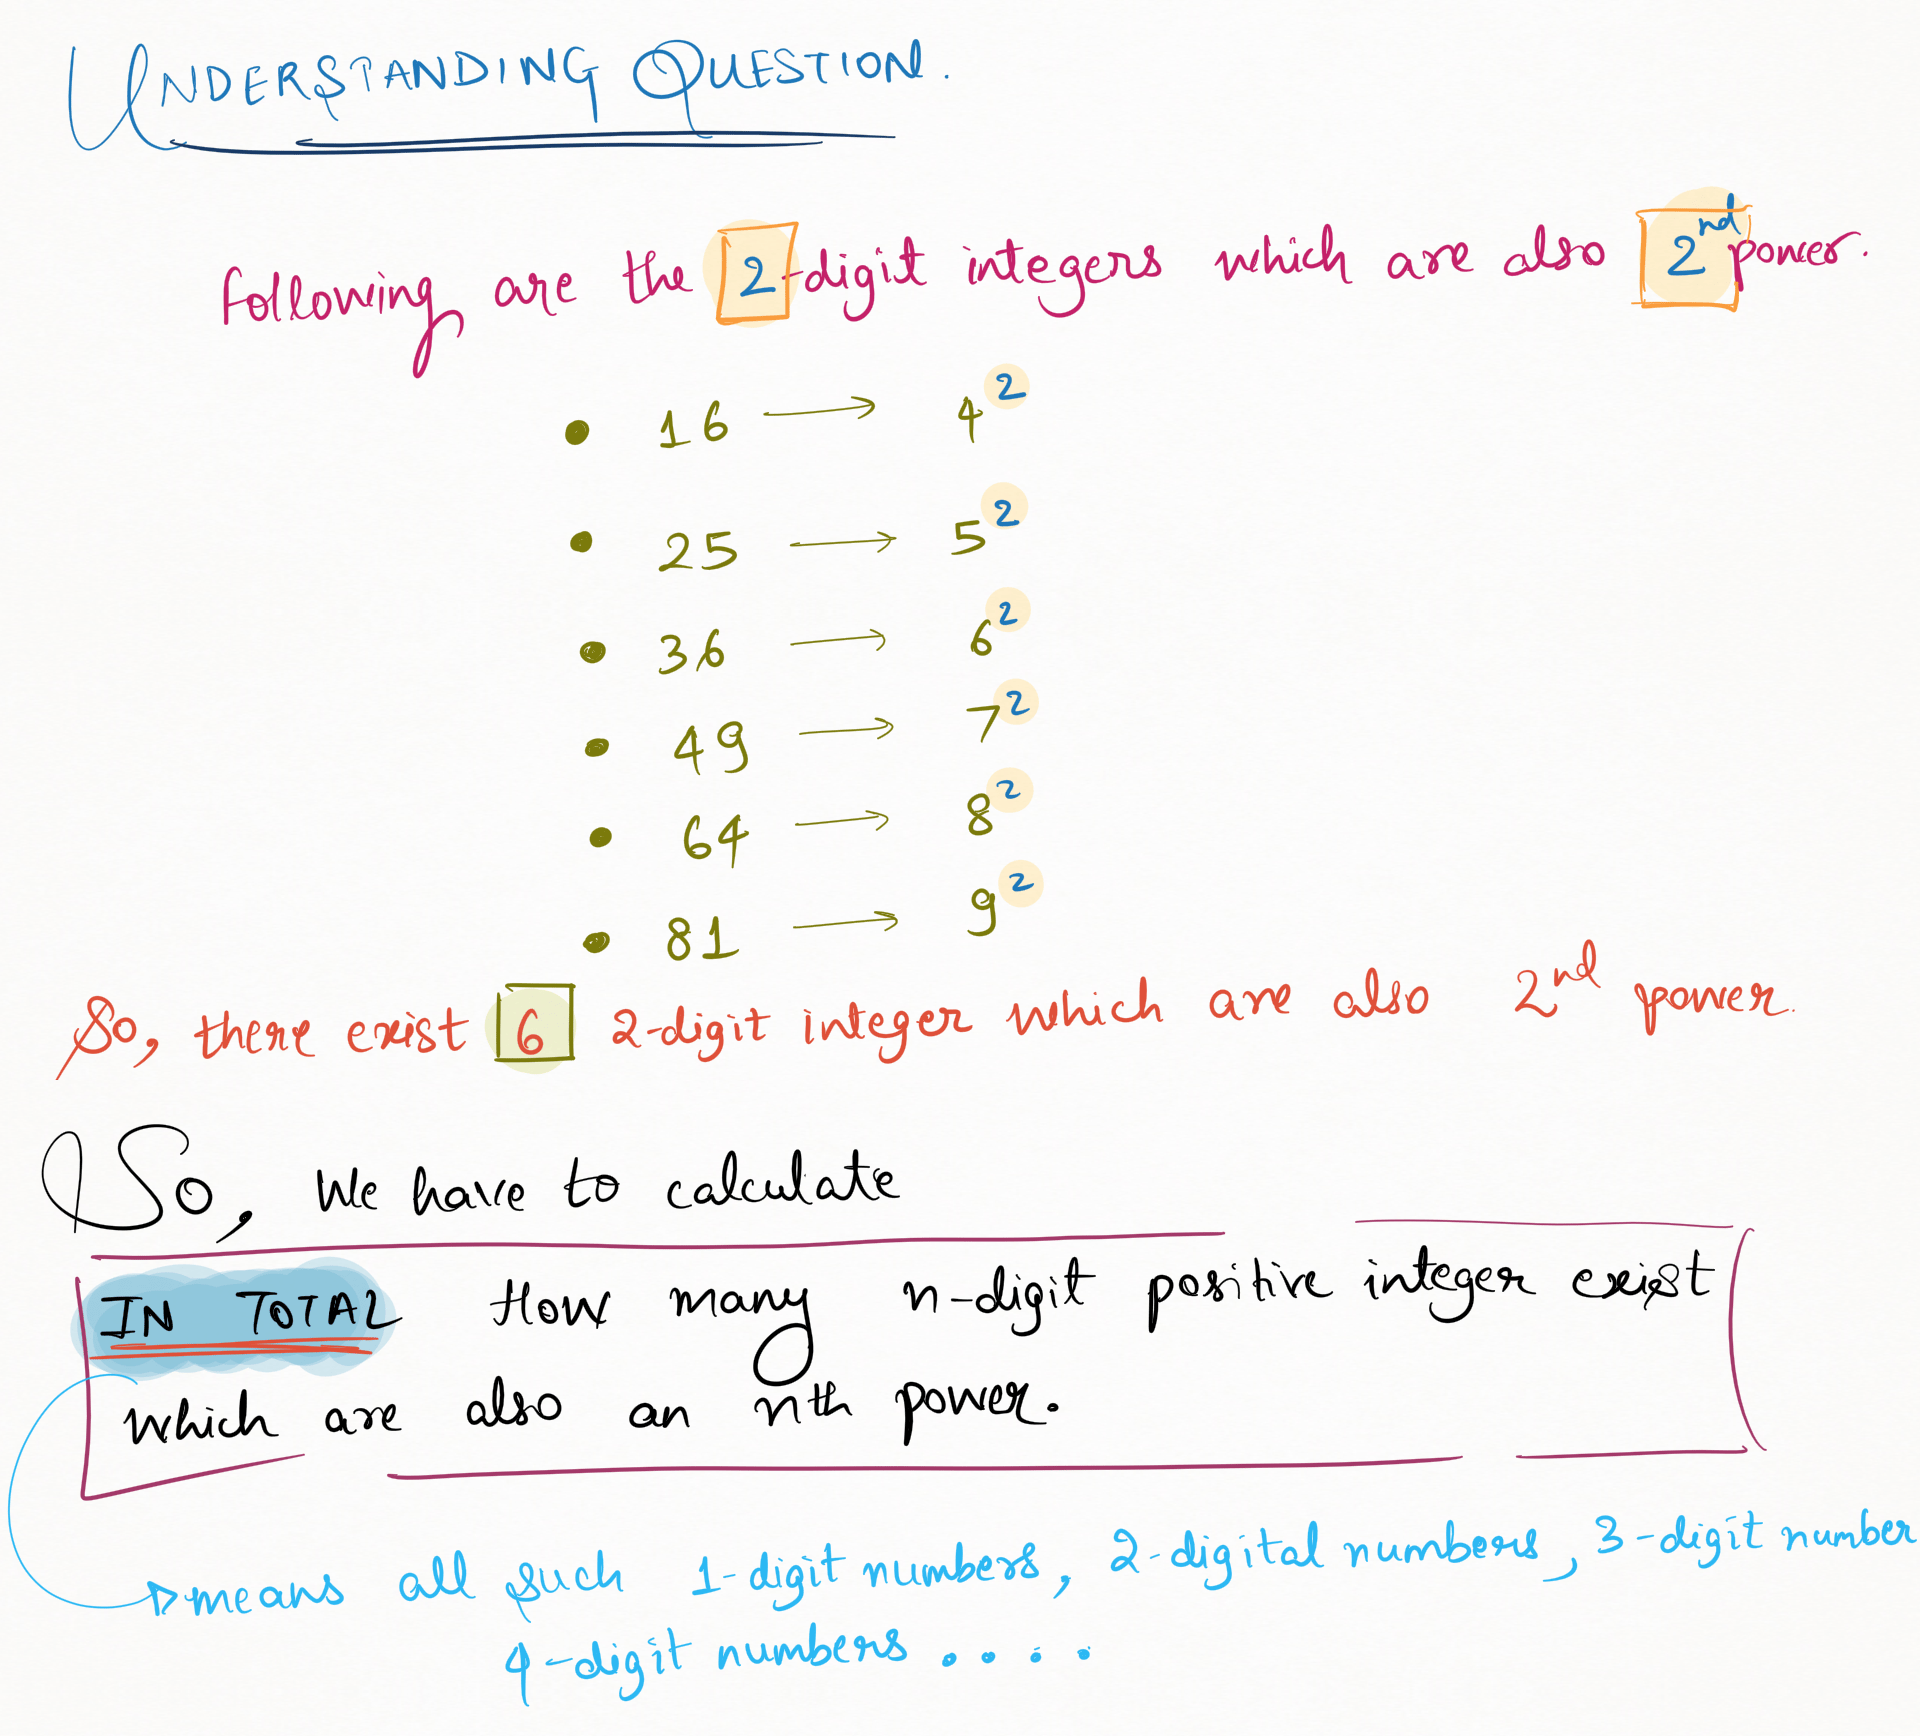 UNDERSTANDING QUESTION.
Following are the 2-digit integers which are also 2nd power.
• 16 → 4²
• 25 → 5²
• 36 → 6²
• 49 → 7²
• 64 → 8²
• 81 → 9²
So, there exist 6 2-digit integer which are also 2nd power.
So, We have to calculate
IN TOTAL How many n-digit positive integer exist
which are also an nth power.
means all such 1-digit numbers, 2-digital numbers, 3-digit number
4-digit numbers . . . .